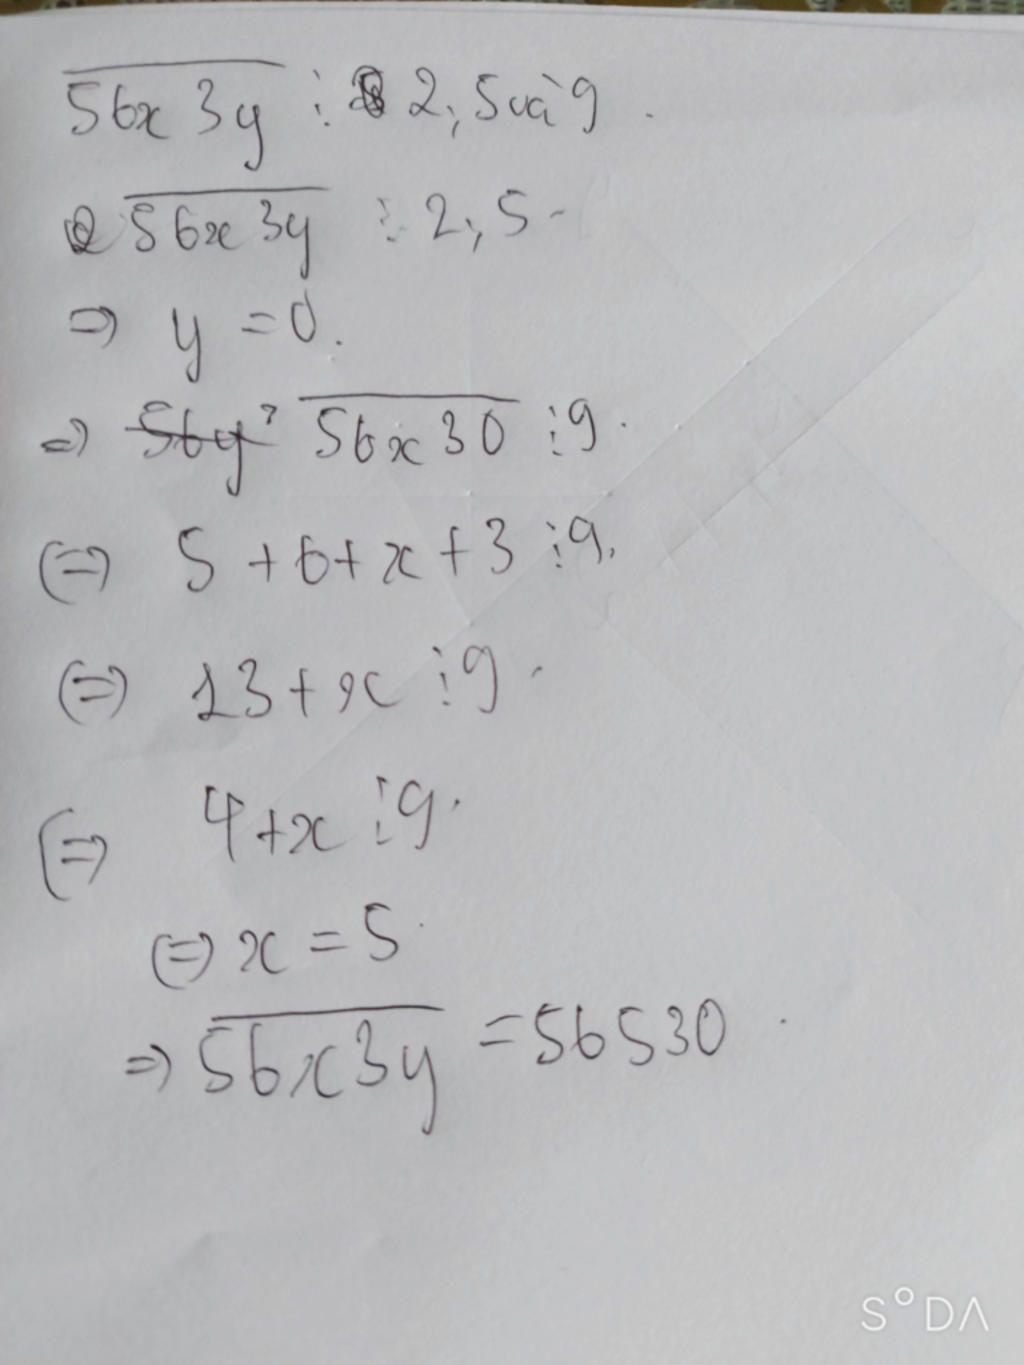 56x3y ⋮ 2; 5 và 9.
56x3y ⋮ 2; 5
=> y = 0.
=> 56y 56x30 ⋮ 9.
(=) 5 + 6 + x + 3 ⋮ 9.
(=) 13 + x ⋮ 9.
(=) 4 + x ⋮ 9.
(=) x = 5.
=> 56x3y = 56530.
S°DA